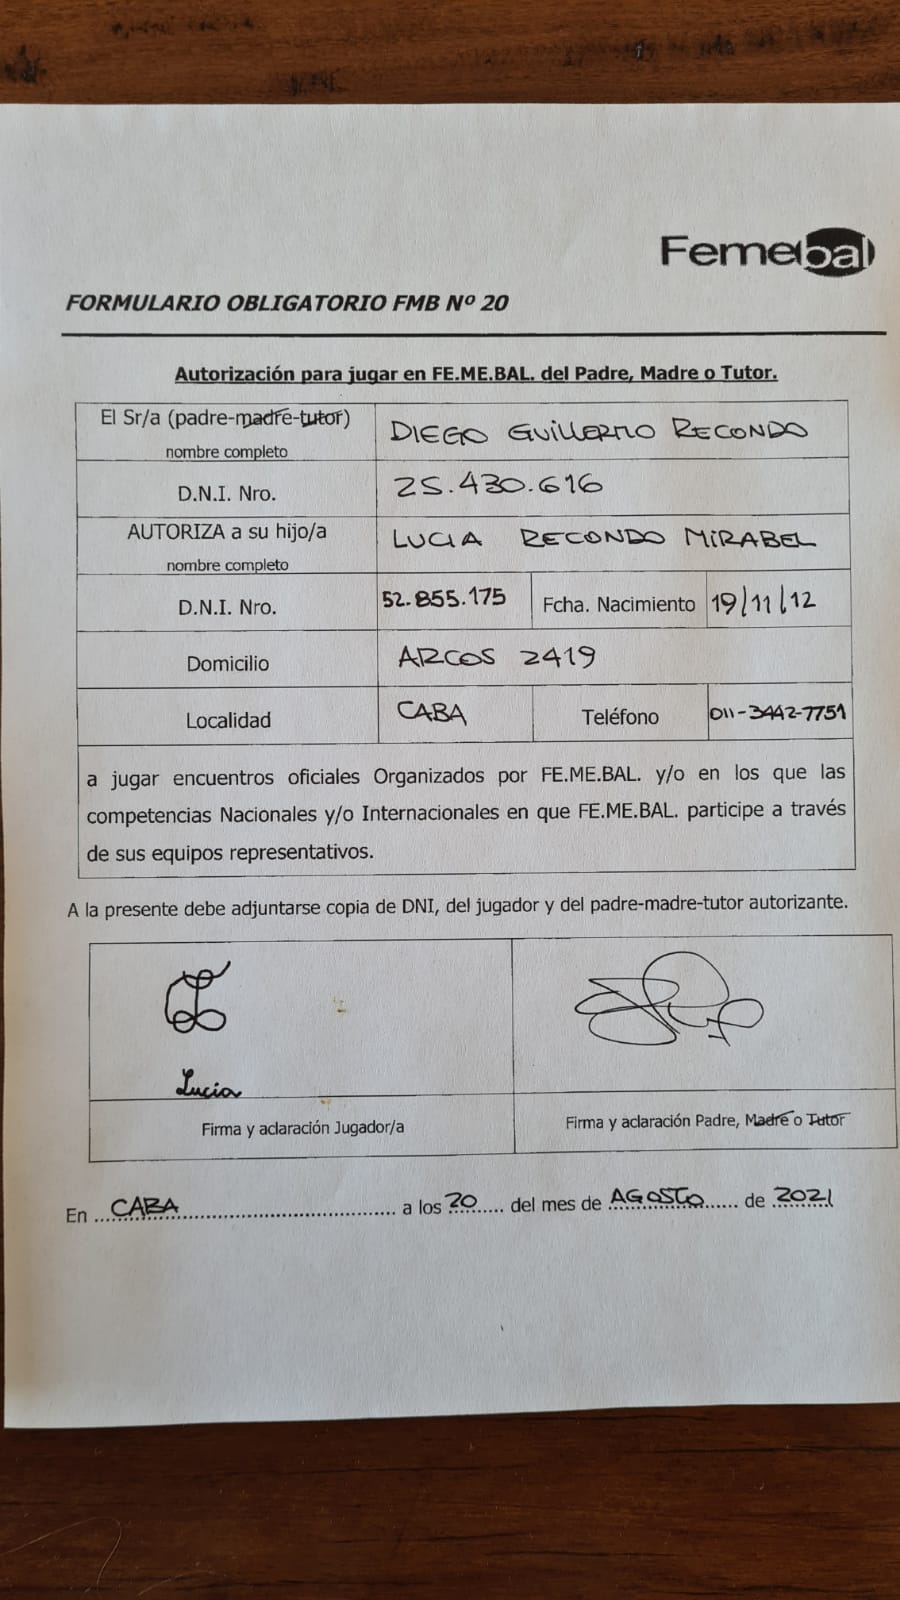 Femebal
FORMULARIO OBLIGATORIO FMB Nº 20
Autorización para jugar en FE.ME.BAL. del Padre, Madre o Tutor.
El Sr/a (padre-madre-tutor)
nombre completo
DIEGO GUILLERMO RECONDO
D.N.I. Nro.
25.430.616
AUTORIZA a su hijo/a
nombre completo
LUCIA RECONDO MIRABEL
D.N.I. Nro.
52.855.175
Fcha. Nacimiento
19/11/12
Domicilio
ARCOS 2419
Localidad
CABA
Teléfono
011-3442-7751
a jugar encuentros oficiales Organizados por FE.ME.BAL. y/o en los que las
competencias Nacionales y/o Internacionales en que FE.ME.BAL. participe a través
de sus equipos representativos.
A la presente debe adjuntarse copia de DNI, del jugador y del padre-madre-tutor autorizante.
Lucia
Firma y aclaración Jugador/a
Firma y aclaración Padre, Madre o Tutor
En CABA a los 20 del mes de AGOSTO de 2021